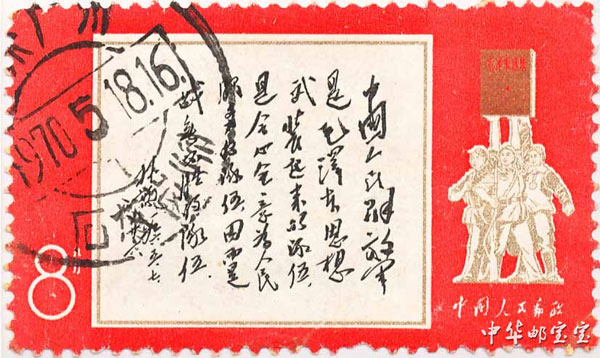 中國人民解放军
是毛澤东思想
武装起来的隊伍,
是全心全意为人民
服务的隊伍,因而是
战无不胜的隊伍.
林彪
8分
中国人民邮政
1970.5.18.16
中华邮宝宝